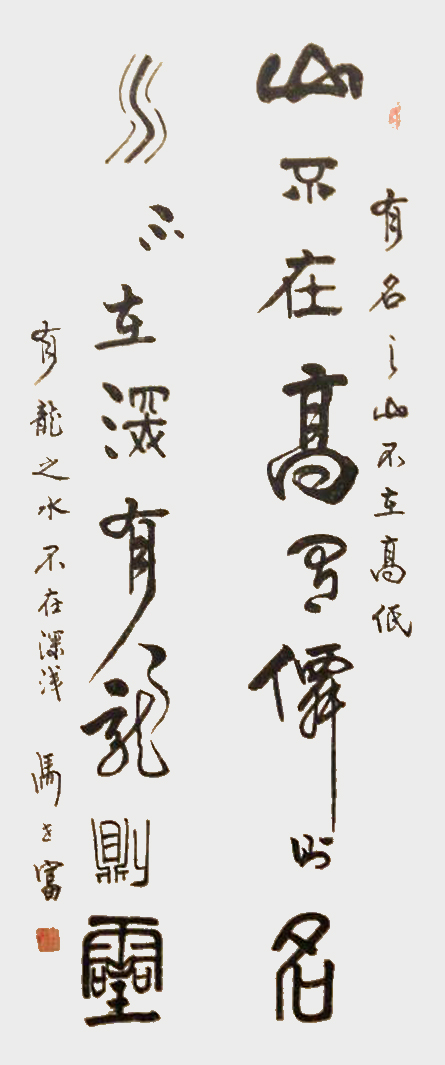 有名之山不在高低
山不在高有僊則名
水不在深有龍則靈
有龍之水不在深浅
馬
富